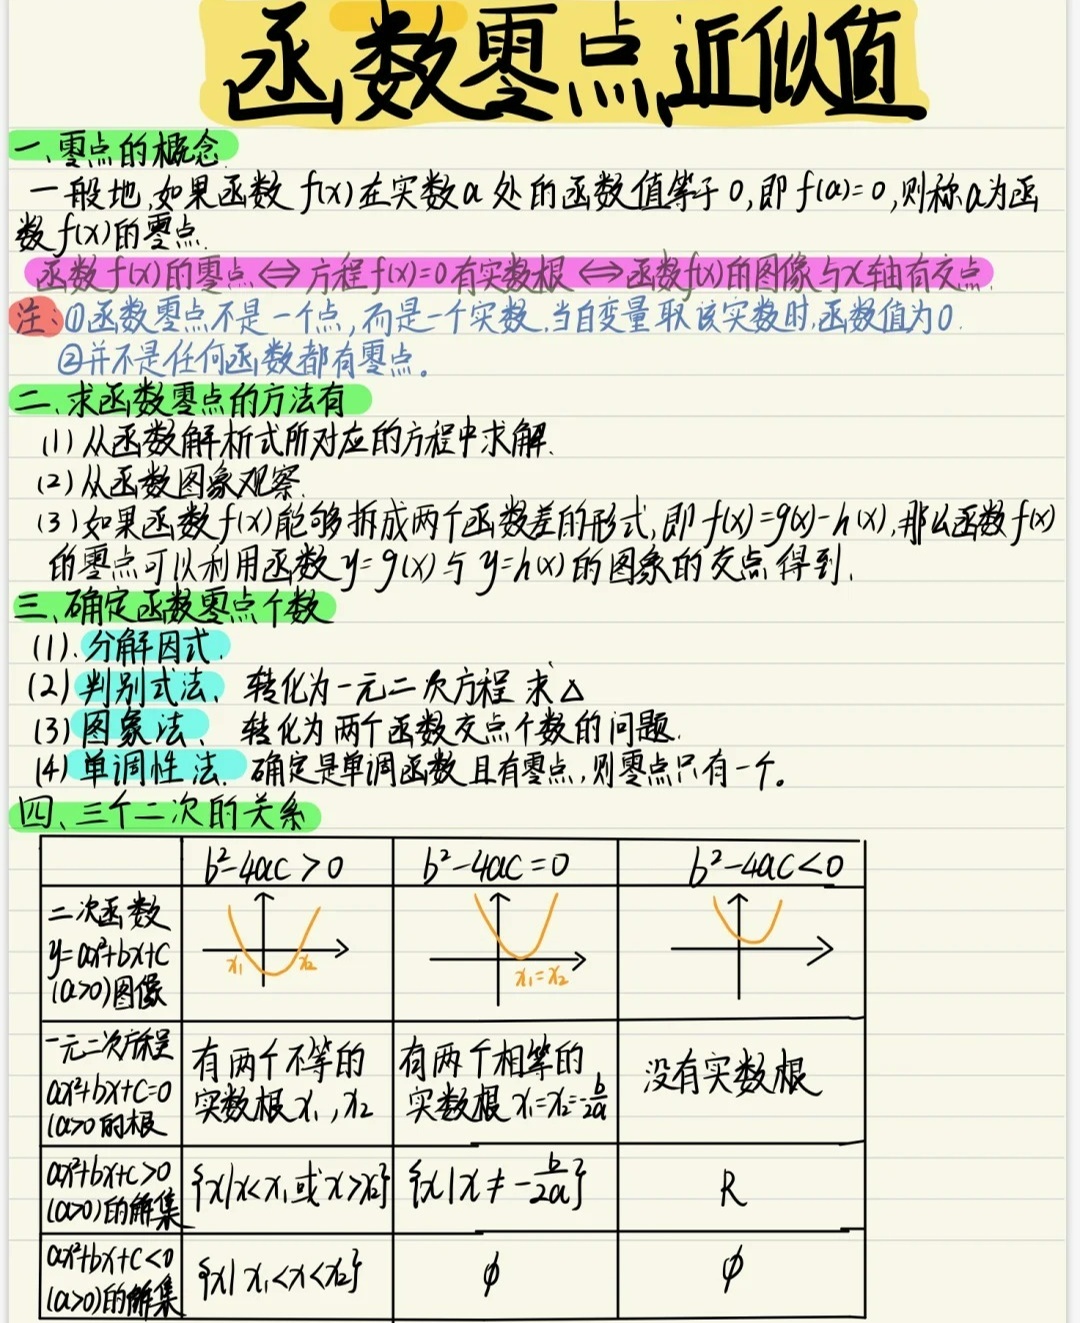 函数零点近似值
一、零点的概念
一般地,如果函数 f(x)在实数a 处的函数值等于0,即 f(a)=0,则称a为函
数f(x)的零点.
函数f(x)的零点⇔方程f(x)=0有实数根⇔函数f(x)的图像与x轴有交点.
注:①函数零点不是一个点,而是一个实数.当自变量取该实数时,函数值为0.
②并不是任何函数都有零点。
二、求函数零点的方法有
(1)从函数解析式所对应的方程中求解.
(2)从函数图象观察.
(3)如果函数f(x)能够拆成两个函数差的形式,即f(x)=g(x)-h(x),那么函数f(x)
的零点可以利用函数y=g(x)与y=h(x)的图象的交点得到.
三、确定函数零点个数
(1).分解因式.
(2)判别式法、转化为一元二次方程 求△
(3)图象法、转化为两个函数交点个数的问题.
(4)单调性法.确定是单调函数且有零点,则零点只有一个。
四、三个二次的关系
b²-4ac>0 b²-4ac=0 b²-4ac<0
二次函数
y=ax²+bx+c
(a>0)图像
x₁ x₂
x₁=x₂
一元二次方程
ax²+bx+c=0
(a>0的根
有两个不等的
实数根x₁,x₂
有两个相等的
实数根x₁=x₂=-b/2a
没有实数根
ax²+bx+c>0
(a>0)的解集
{x|x<x₁或x>x₂}
{x|x≠-b/2a}
R
ax²+bx+c<0
(a>0)的解集
{x|x₁<x<x₂}
ϕ
ϕ